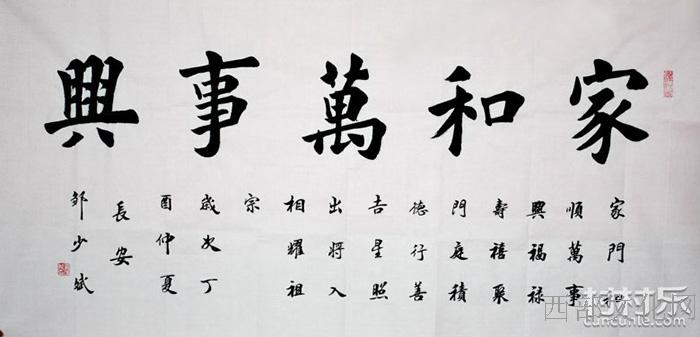 家和萬事興
家門和
順萬事
興福禄
壽禧聚
門庭積
德行善
吉星照
出將入
相耀祖
宗
歲次丁
酉仲夏
長安
邹少斌
村村乐
cuncunle.com